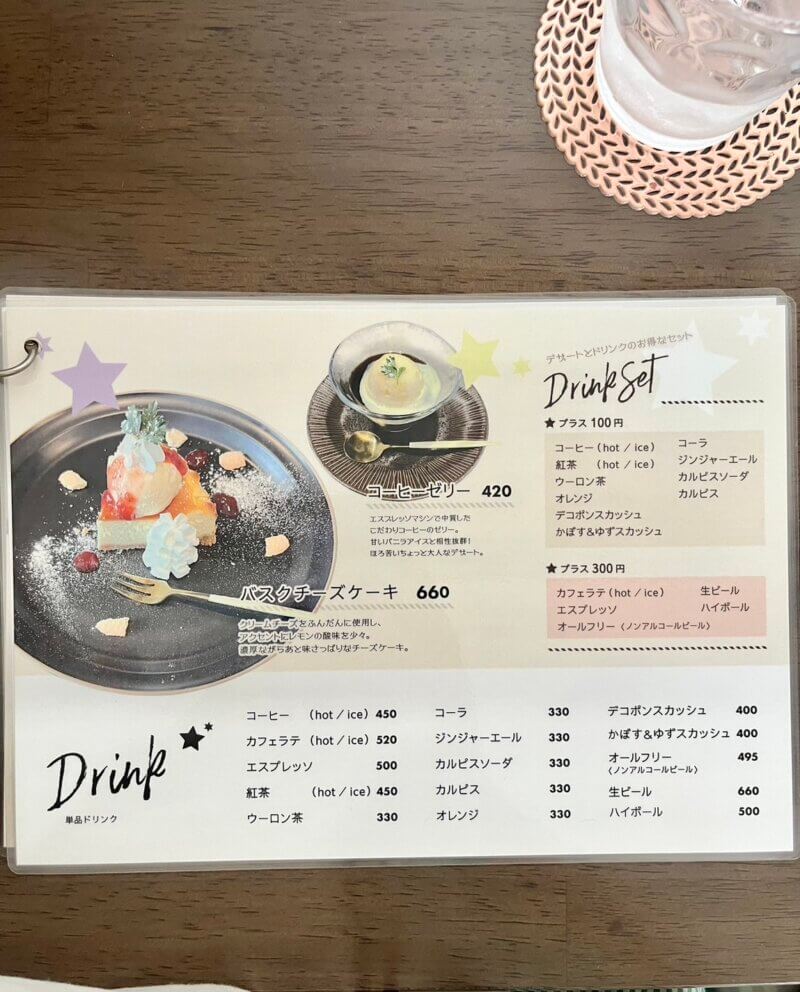 コーヒーゼリー 420
エスプレッソマシンで中質した
こだわりコーヒーのゼリー。
甘いバニラアイスと相性抜群!
ほろ苦いちょっと大人なデザート。
バスクチーズケーキ 660
クリームチーズをふんだんに使用し、
アクセントにレモンの酸味を少々。
濃厚ながらあと味さっぱりなチーズケーキ。
デザートとドリンクのお得なセット
Drink Set
★ プラス 100 円
コーヒー (hot / ice) コーラ
紅茶 (hot / ice) ジンジャーエール
ウーロン茶 カルピスソーダ
オレンジ カルピス
デコポンスカッシュ
かぼす&ゆずスカッシュ
★ プラス 300 円
カフェラテ (hot / ice) 生ビール
エスプレッソ ハイボール
オールフリー 〈ノンアルコールビール〉
Drink
単品ドリンク
コーヒー (hot / ice) 450
カフェラテ (hot / ice) 520
エスプレッソ 500
紅茶 (hot / ice) 450
ウーロン茶 330
コーラ 330
ジンジャーエール 330
カルピスソーダ 330
カルピス 330
オレンジ 330
デコポンスカッシュ 400
かぼす&ゆずスカッシュ 400
オールフリー 495
〈ノンアルコールビール〉
生ビール 660
ハイボール 500